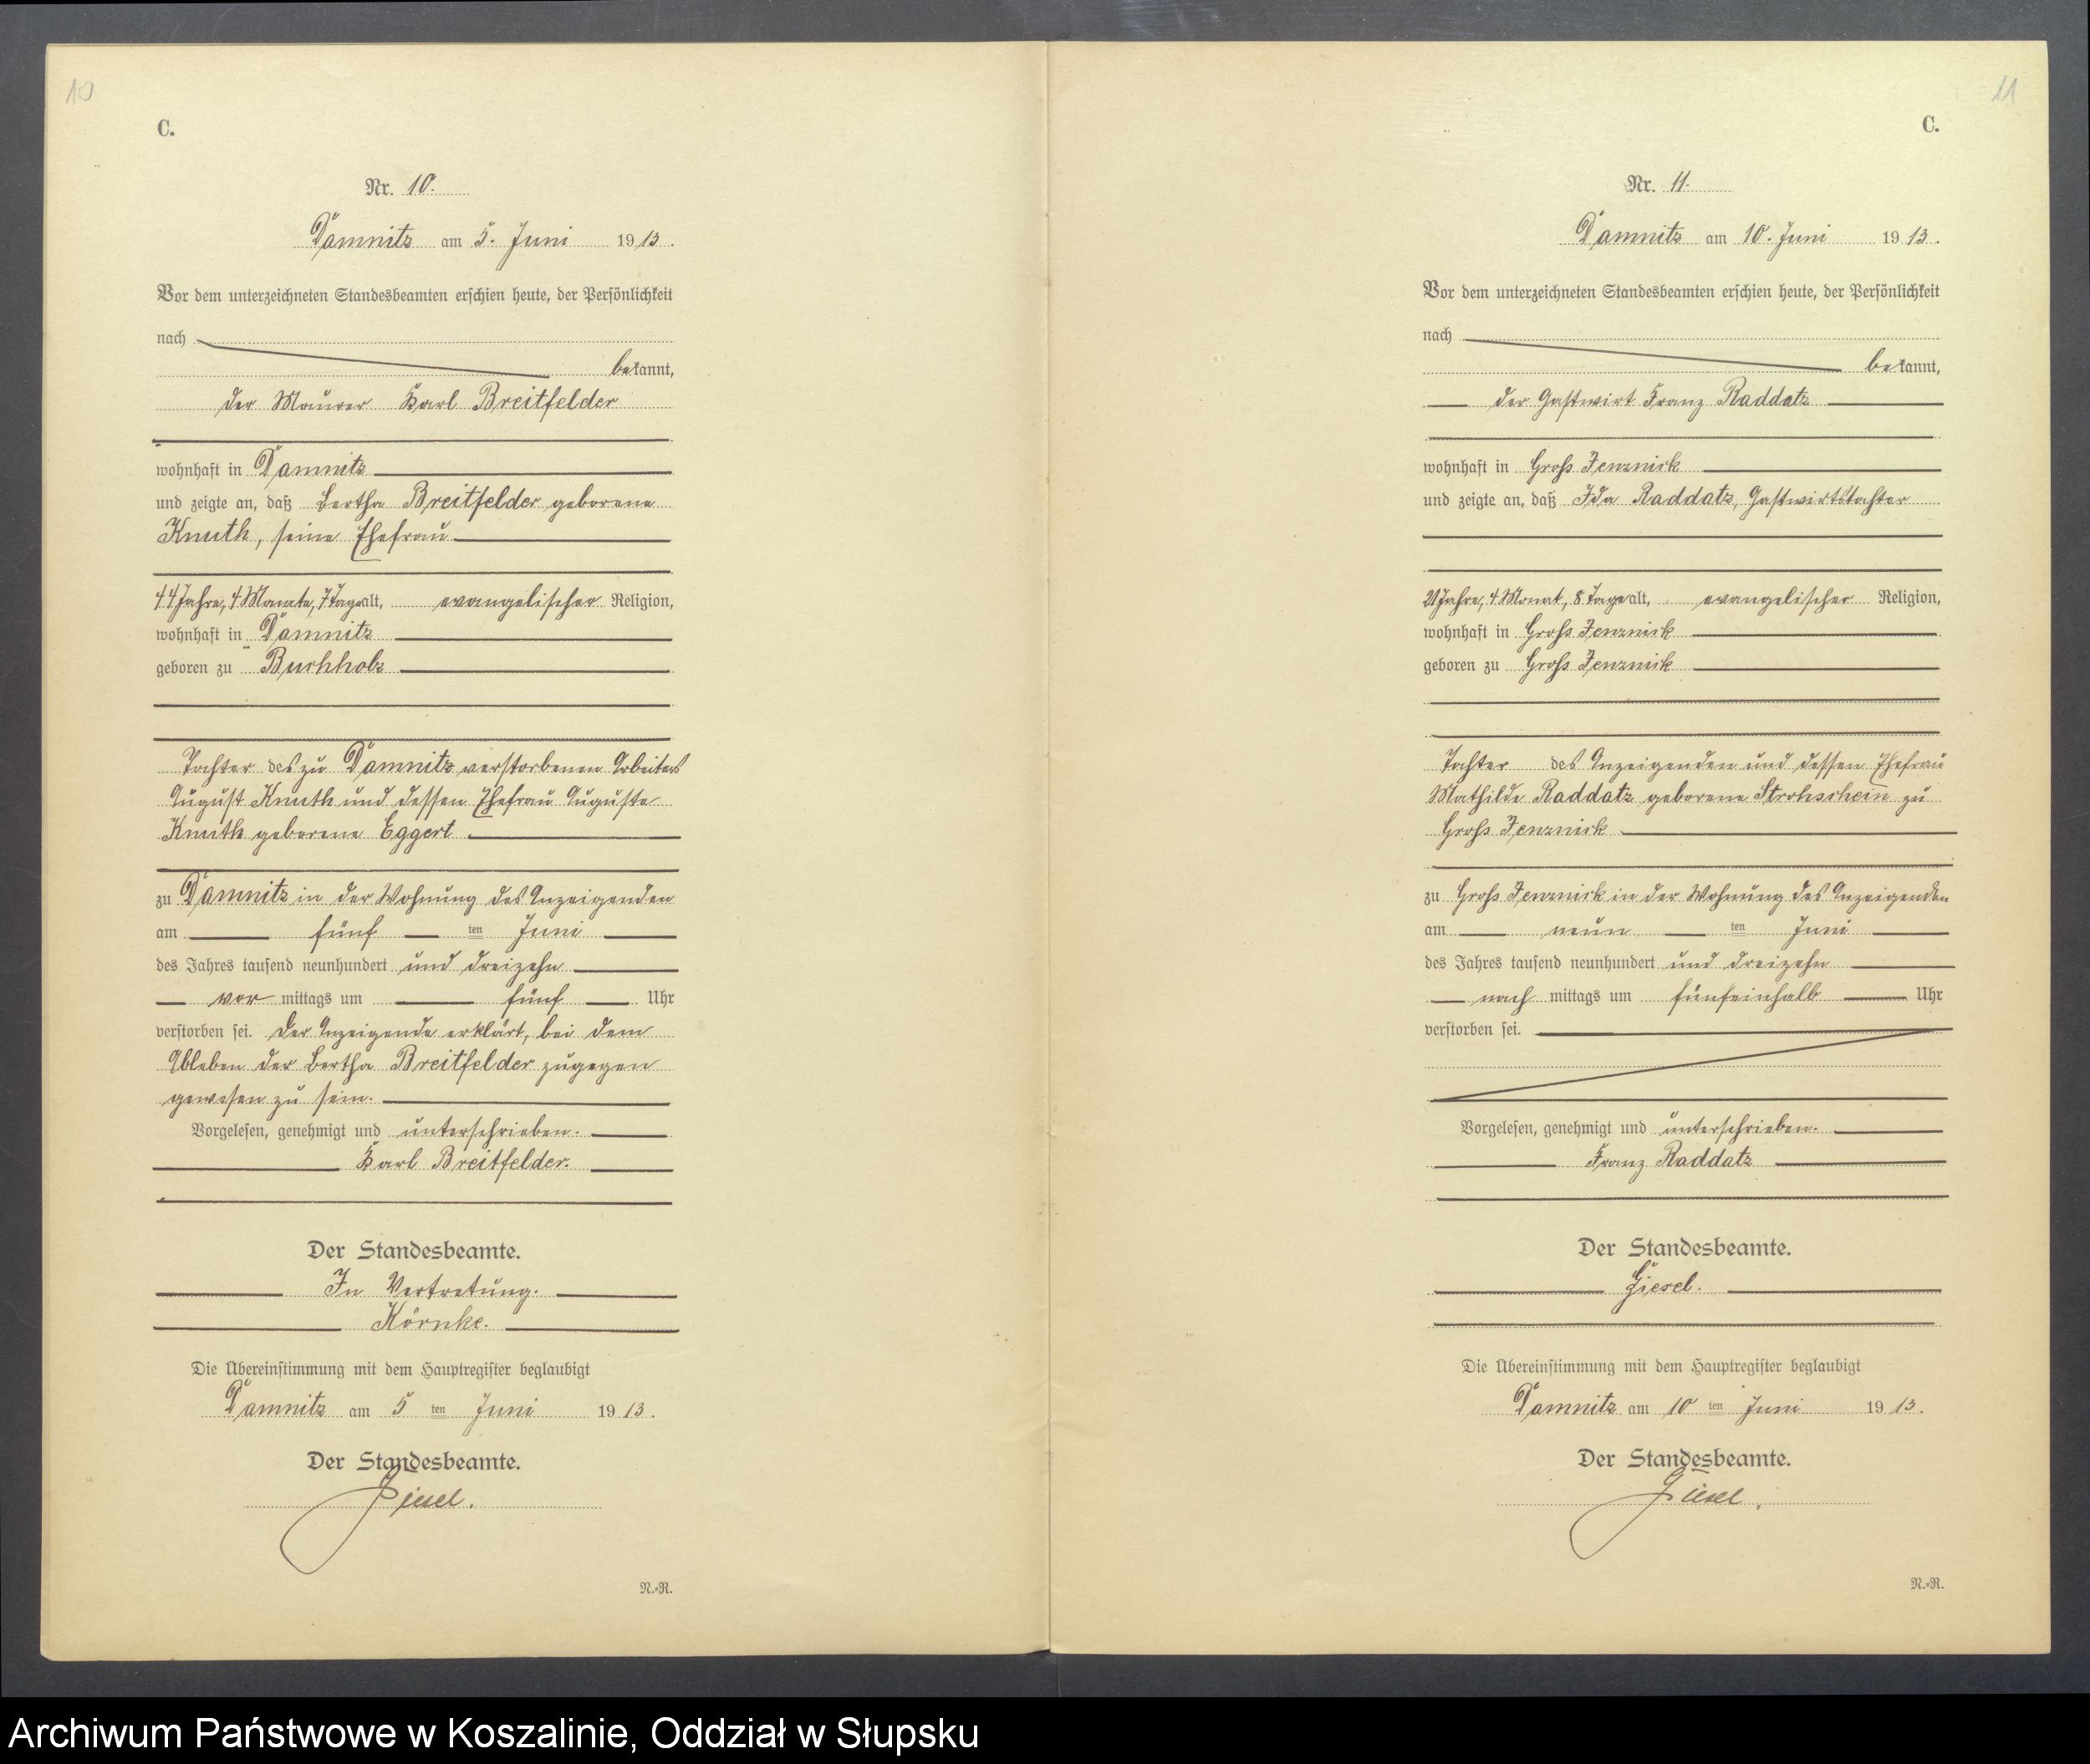 10
C.
Nr. 10.
Damnitz am 5. Juni 1913.
Vor dem unterzeichneten Standesbeamten erschien heute, der Persönlichkeit
nach
bekannt,
der Maurer Karl Breitfelder
wohnhaft in Damnitz
und zeigte an, daß Bertha Breitfelder geborene
Knuth, seine Ehefrau
44 Jahre, 4 Monate, 7 Tage alt, evangelischer Religion,
wohnhaft in Damnitz
geboren zu Buchholz
Tochter des zu Damnitz verstorbenen Arbeiters
August Knuth und dessen Ehefrau Auguste
Knuth geborene Eggert
zu Damnitz in der Wohnung des Anzeigenden
am fünf ten Juni
des Jahres tausend neunhundert und dreizehn
vor mittags um fünf Uhr
verstorben sei. Der Anzeigende erklärt, bei dem
Ableben der Bertha Breitfelder zugegen
gewesen zu sein.
Vorgelesen, genehmigt und unterschrieben.
Karl Breitfelder.
Der Standesbeamte.
In Vertretung.
Körnke.
Die Übereinstimmung mit dem Hauptregister beglaubigt
Damnitz am 5 ten Juni 1913.
Der Standesbeamte.
Giesel.
N.-R.
11
C.
Nr. 11.
Damnitz am 10. Juni 1913.
Vor dem unterzeichneten Standesbeamten erschien heute, der Persönlichkeit
nach
bekannt,
der Gastwirt Franz Raddatz
wohnhaft in Groß Jenznick
und zeigte an, daß Ida Raddatz, Gastwirtstochter
21 Jahre, 4 Monat, 8 Tage alt, evangelischer Religion,
wohnhaft in Groß Jenznick
geboren zu Groß Jenznick
Tochter des Anzeigenden und dessen Ehefrau
Mathilde Raddatz geborene Strohschein zu
Groß Jenznick
zu Groß Jenznick in der Wohnung des Anzeigenden
am neun ten Juni
des Jahres tausend neunhundert und dreizehn
nach mittags um fünfeinhalb Uhr
verstorben sei.
Vorgelesen, genehmigt und unterschrieben.
Franz Raddatz
Der Standesbeamte.
Giesel.
Die Übereinstimmung mit dem Hauptregister beglaubigt
Damnitz am 10 ten Juni 1913.
Der Standesbeamte.
Giesel.
N.-R.
Archiwum Państwowe w Koszalinie, Oddział w Słupsku